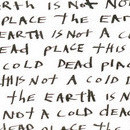 RTH IS NOT NOT
PLACE THE EAR
EARTH IS NOT A
DEAD PLACE THIS
COLD DEAD PLAC
THIS NOT A COLD
THE EARTH IS N
NOT A COLD DEAD
D PLACE THE